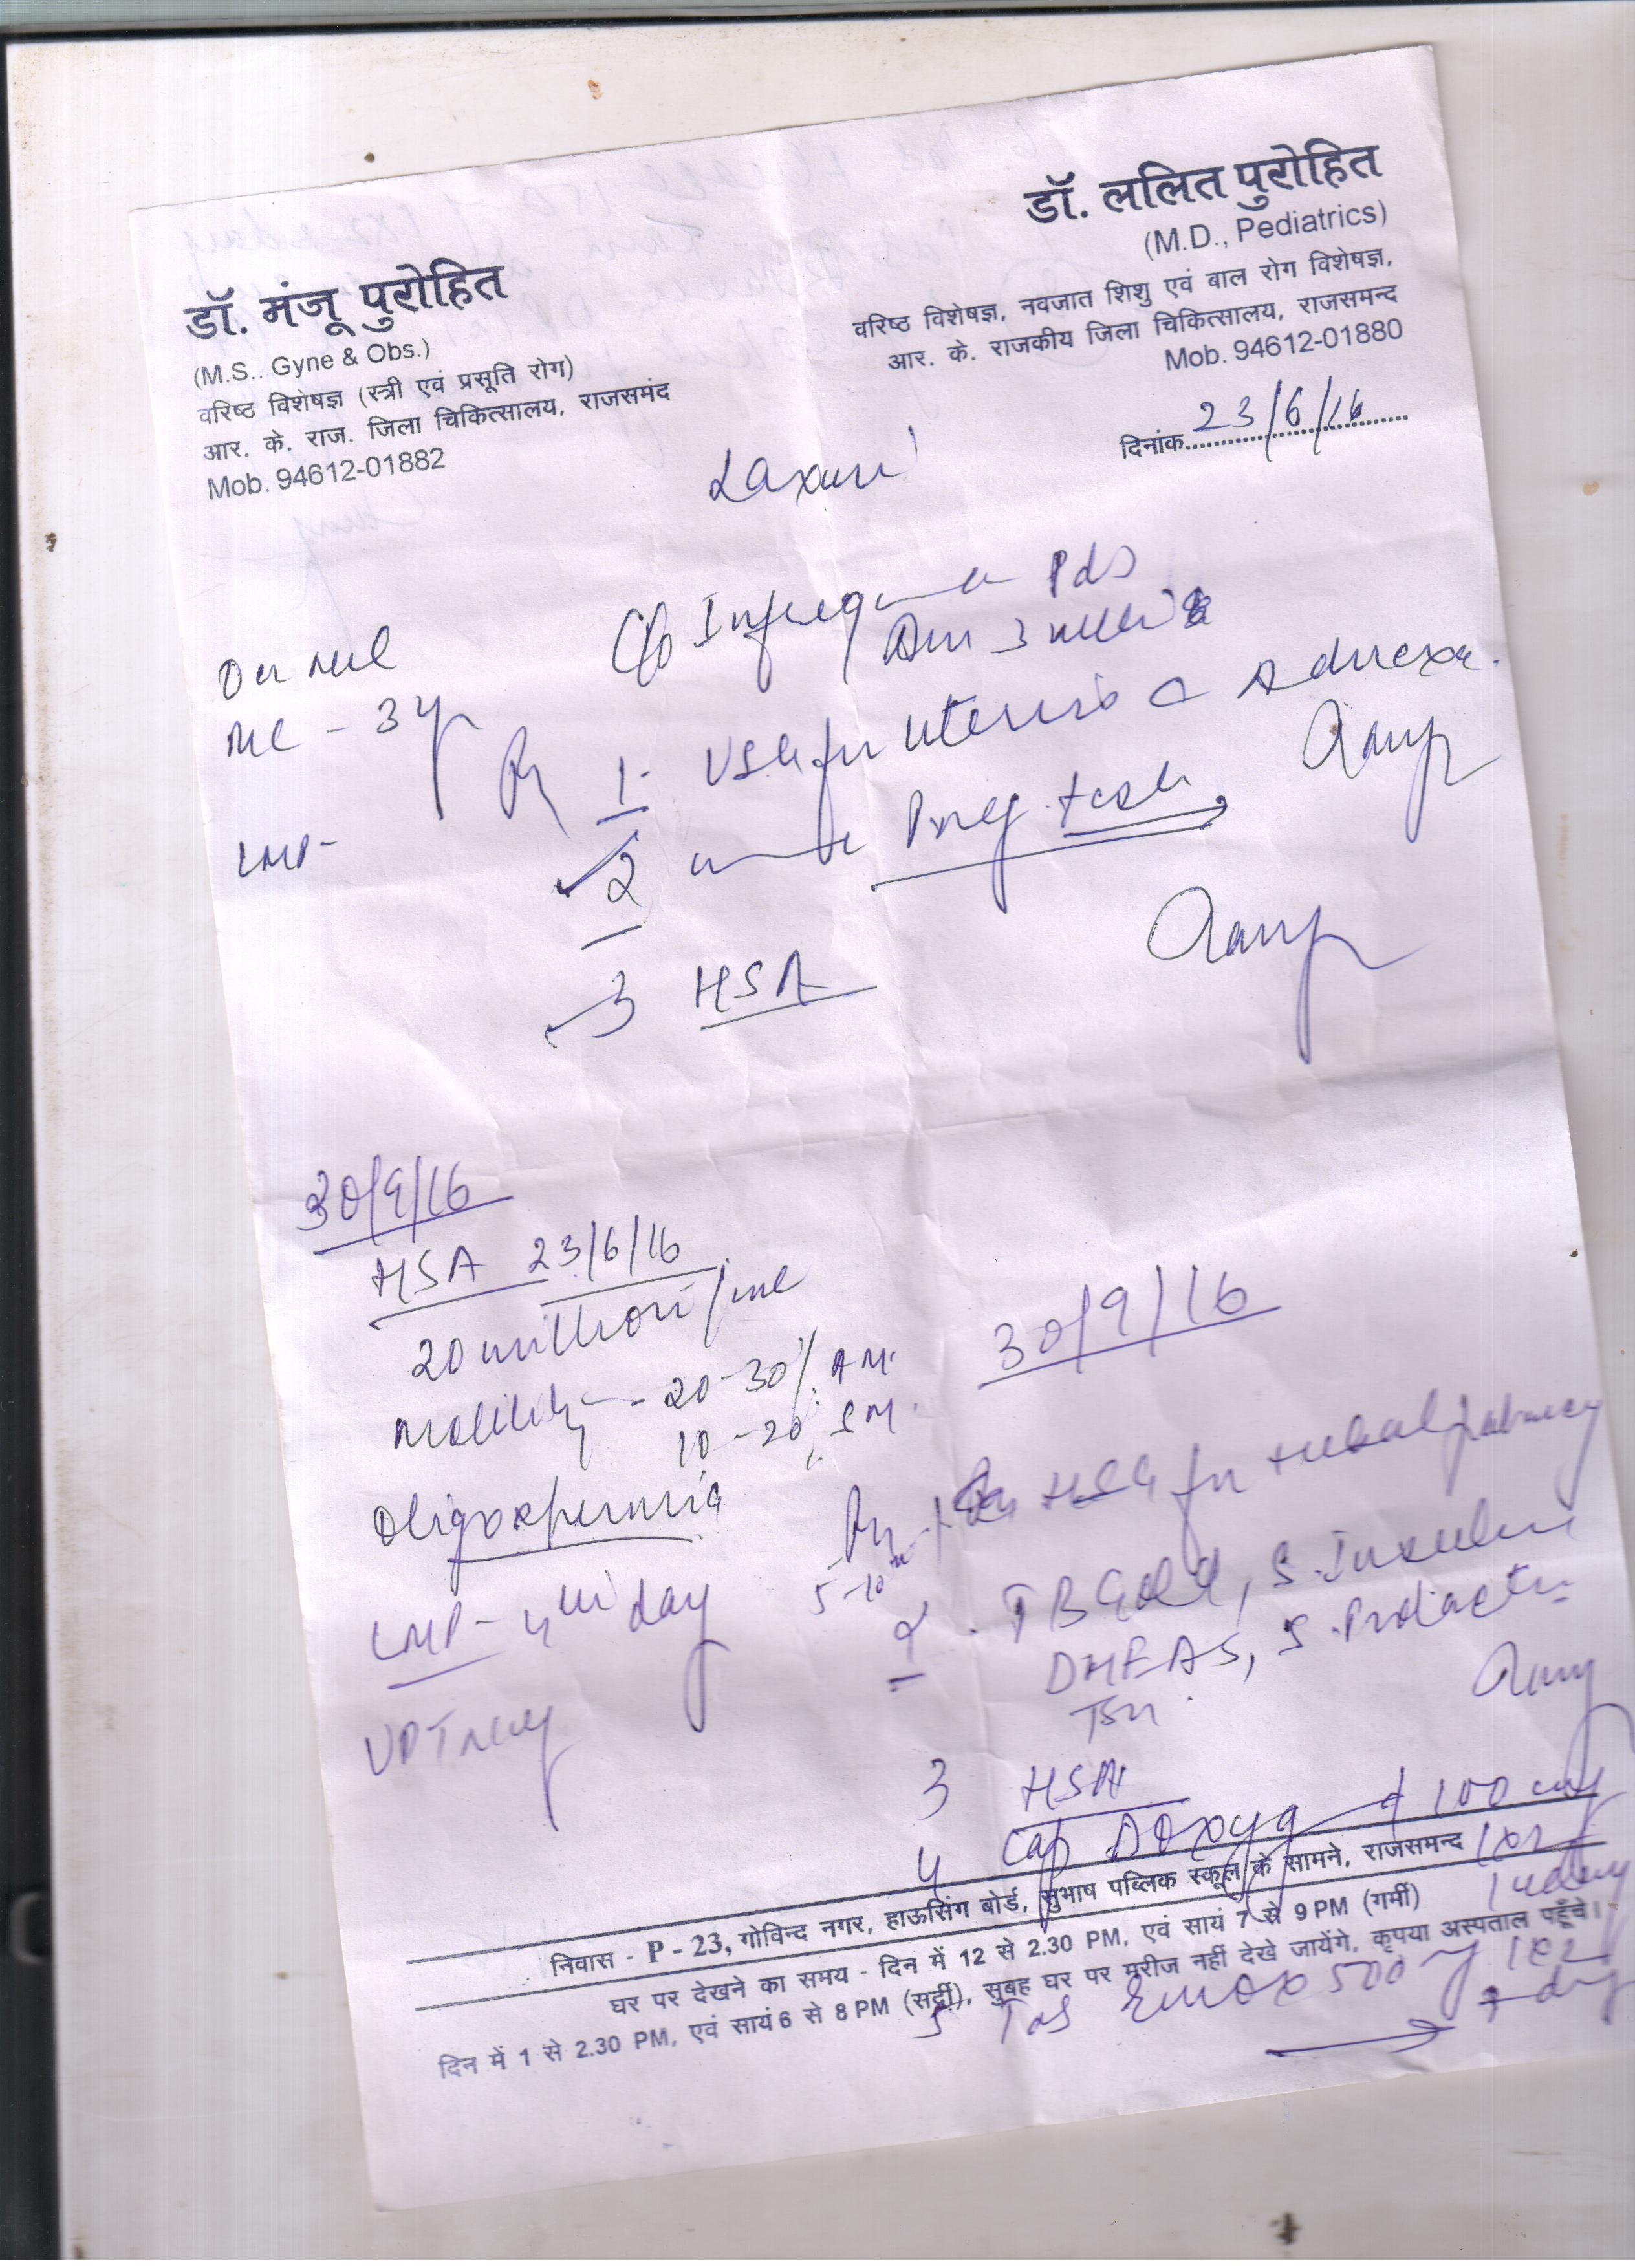 डॉ. मंजू पुरोहित
(M.S.. Gyne & Obs.)
वरिष्ठ विशेषज्ञ (स्त्री एवं प्रसूति रोग)
आर. के. राज. जिला चिकित्सालय, राजसमंद
Mob. 94612-01882
डॉ. ललित पुरोहित
(M.D., Pediatrics)
वरिष्ठ विशेषज्ञ, नवजात शिशु एवं बाल रोग विशेषज्ञ,
आर. के. राजकीय जिला चिकित्सालय, राजसमन्द
Mob. 94612-01880
दिनांक 23/6/16
Laxmi
C/o Infrequent Pds
3
LMP-
1- USG for uterus c Adnexa.
2 Preg test
3 HSA
30/9/16
HSA 23/6/16
20 million/ml
Motility - 20-30%
10-20%
Oligospermia
LMP- 4th day
UPT neg
30/9/16
HSG for tubal patency
5-10
2. TB Gold, S. Insulin
DHEAS, S. Prolactin
TSH
3 HSA
4 Cap Doxy 100 mg
1x2
निवास - P - 23, गोविन्द नगर, हाऊसिंग बोर्ड, सुभाष पब्लिक स्कूल के सामने, राजसमन्द
घर पर देखने का समय - दिन में 12 से 2.30 PM, एवं सायं 7 से 9 PM (गर्मी)
दिन में 1 से 2.30 PM, एवं सायं 6 से 8 PM (सर्दी), सुबह घर पर मरीज नहीं देखे जायेंगे, कृपया अस्पताल पहुँचे।
5 Tab 500 1x2